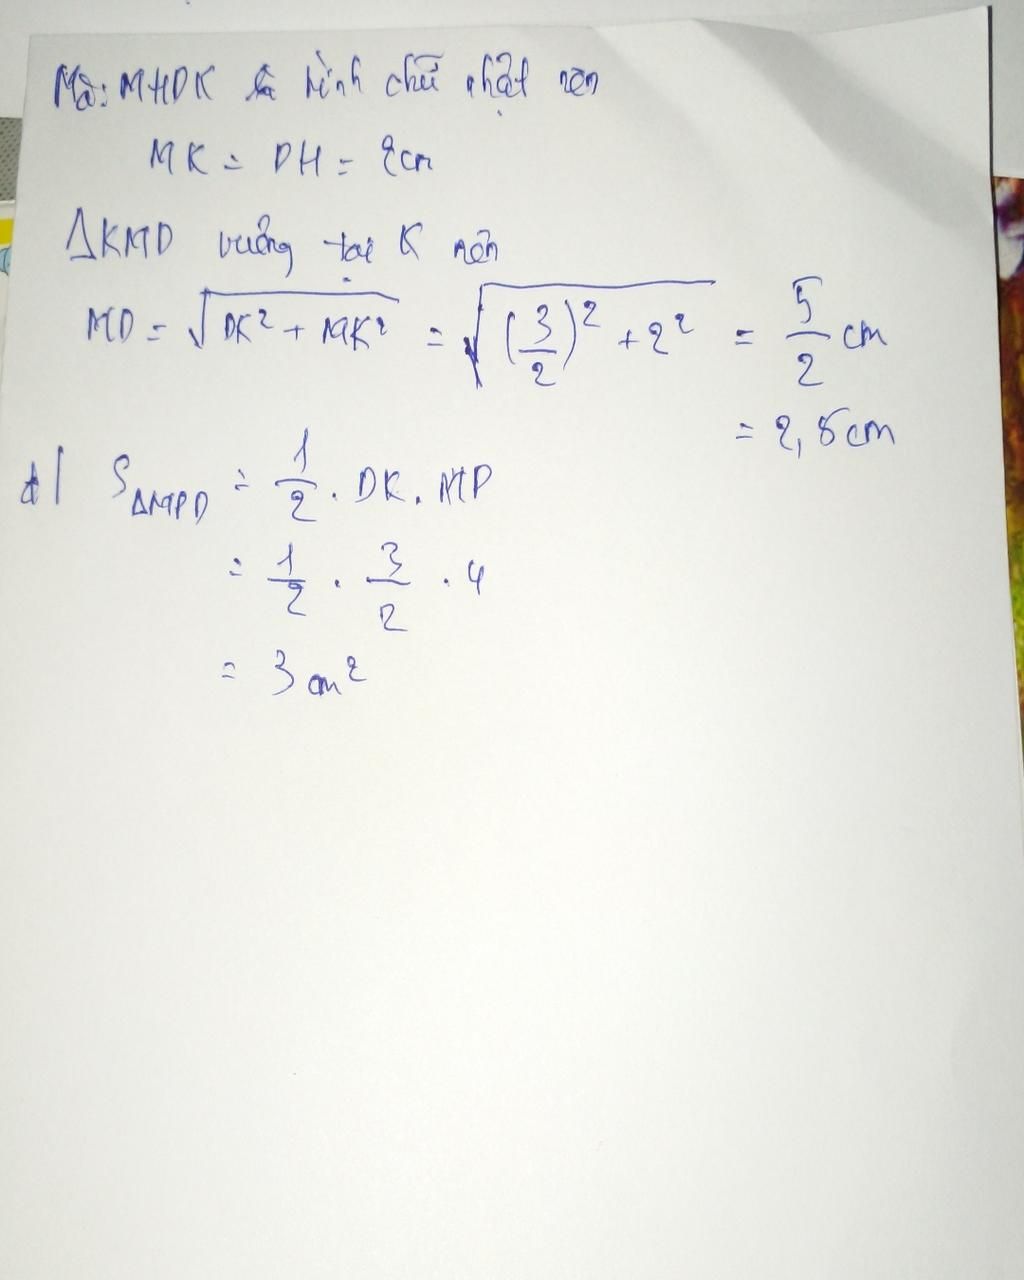 Mà: MHDK là hình chữ nhật nên
MK = DH = 2cm
ΔKMD vuông tại K nên
MD = √(DK² + MK²) = √((3/2)² + 2²) = 5/2 cm
= 2,5cm
d/ S_ΔMPD = 1/2 . DK . MP
= 1/2 . 3/2 . 4
= 3 cm²